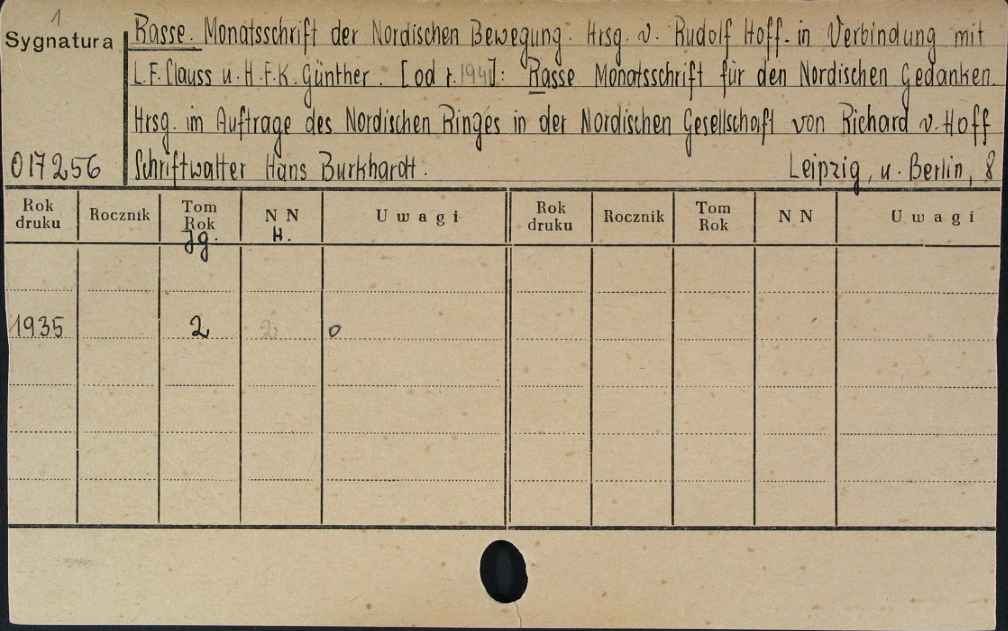 1
Sygnatura
Rasse. Monatsschrift der Nordischen Bewegung. Hrsg. v. Rudolf Hoff. in Verbindung mit
L.F. Clauss u. H.F.K. Günther. [od r. 1941]: Rasse Monatsschrift für den Nordischen Gedanken.
Hrsg. im Auftrage des Nordischen Ringes in der Nordischen Gesellschaft von Richard v. Hoff
017256 Schriftwalter Hans Burkhardt. Leipzig, u. Berlin, 8
Rok druku Rocznik Tom Rok NN Uwagi Rok druku Rocznik Tom Rok NN Uwagi
Jg. H.
1935 2 2 o